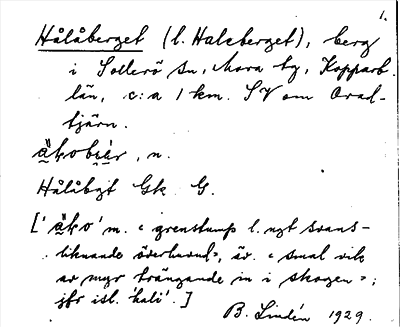 1.
Hålåberget (l. Halaberget), berg
i Sollerö sn, Mora tg, Kopparb.
län, c:a 1 km. SV om Orad-
tjärn.
, n.
Hålåbgt Gk G.
['     ' m. « grenstump l. ngt svans-
liknande överhuvud», äv. « smal vik
av myr trängande in i skogen »;
jfr isl. 'hali'. ]
B. Lindén 1929.